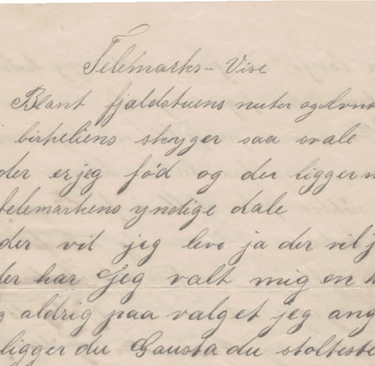 Telemarks-Vise
Blant fjeldstuens nuter og
birkeliens skyger saa svale
der er jeg fød og der ligger
telemarkens yndige dale
der vil jeg leve ja der vil j
der har Jeg valt mig en
g aldrig paa valget jeg ang
ligger du Gausta du stolteste